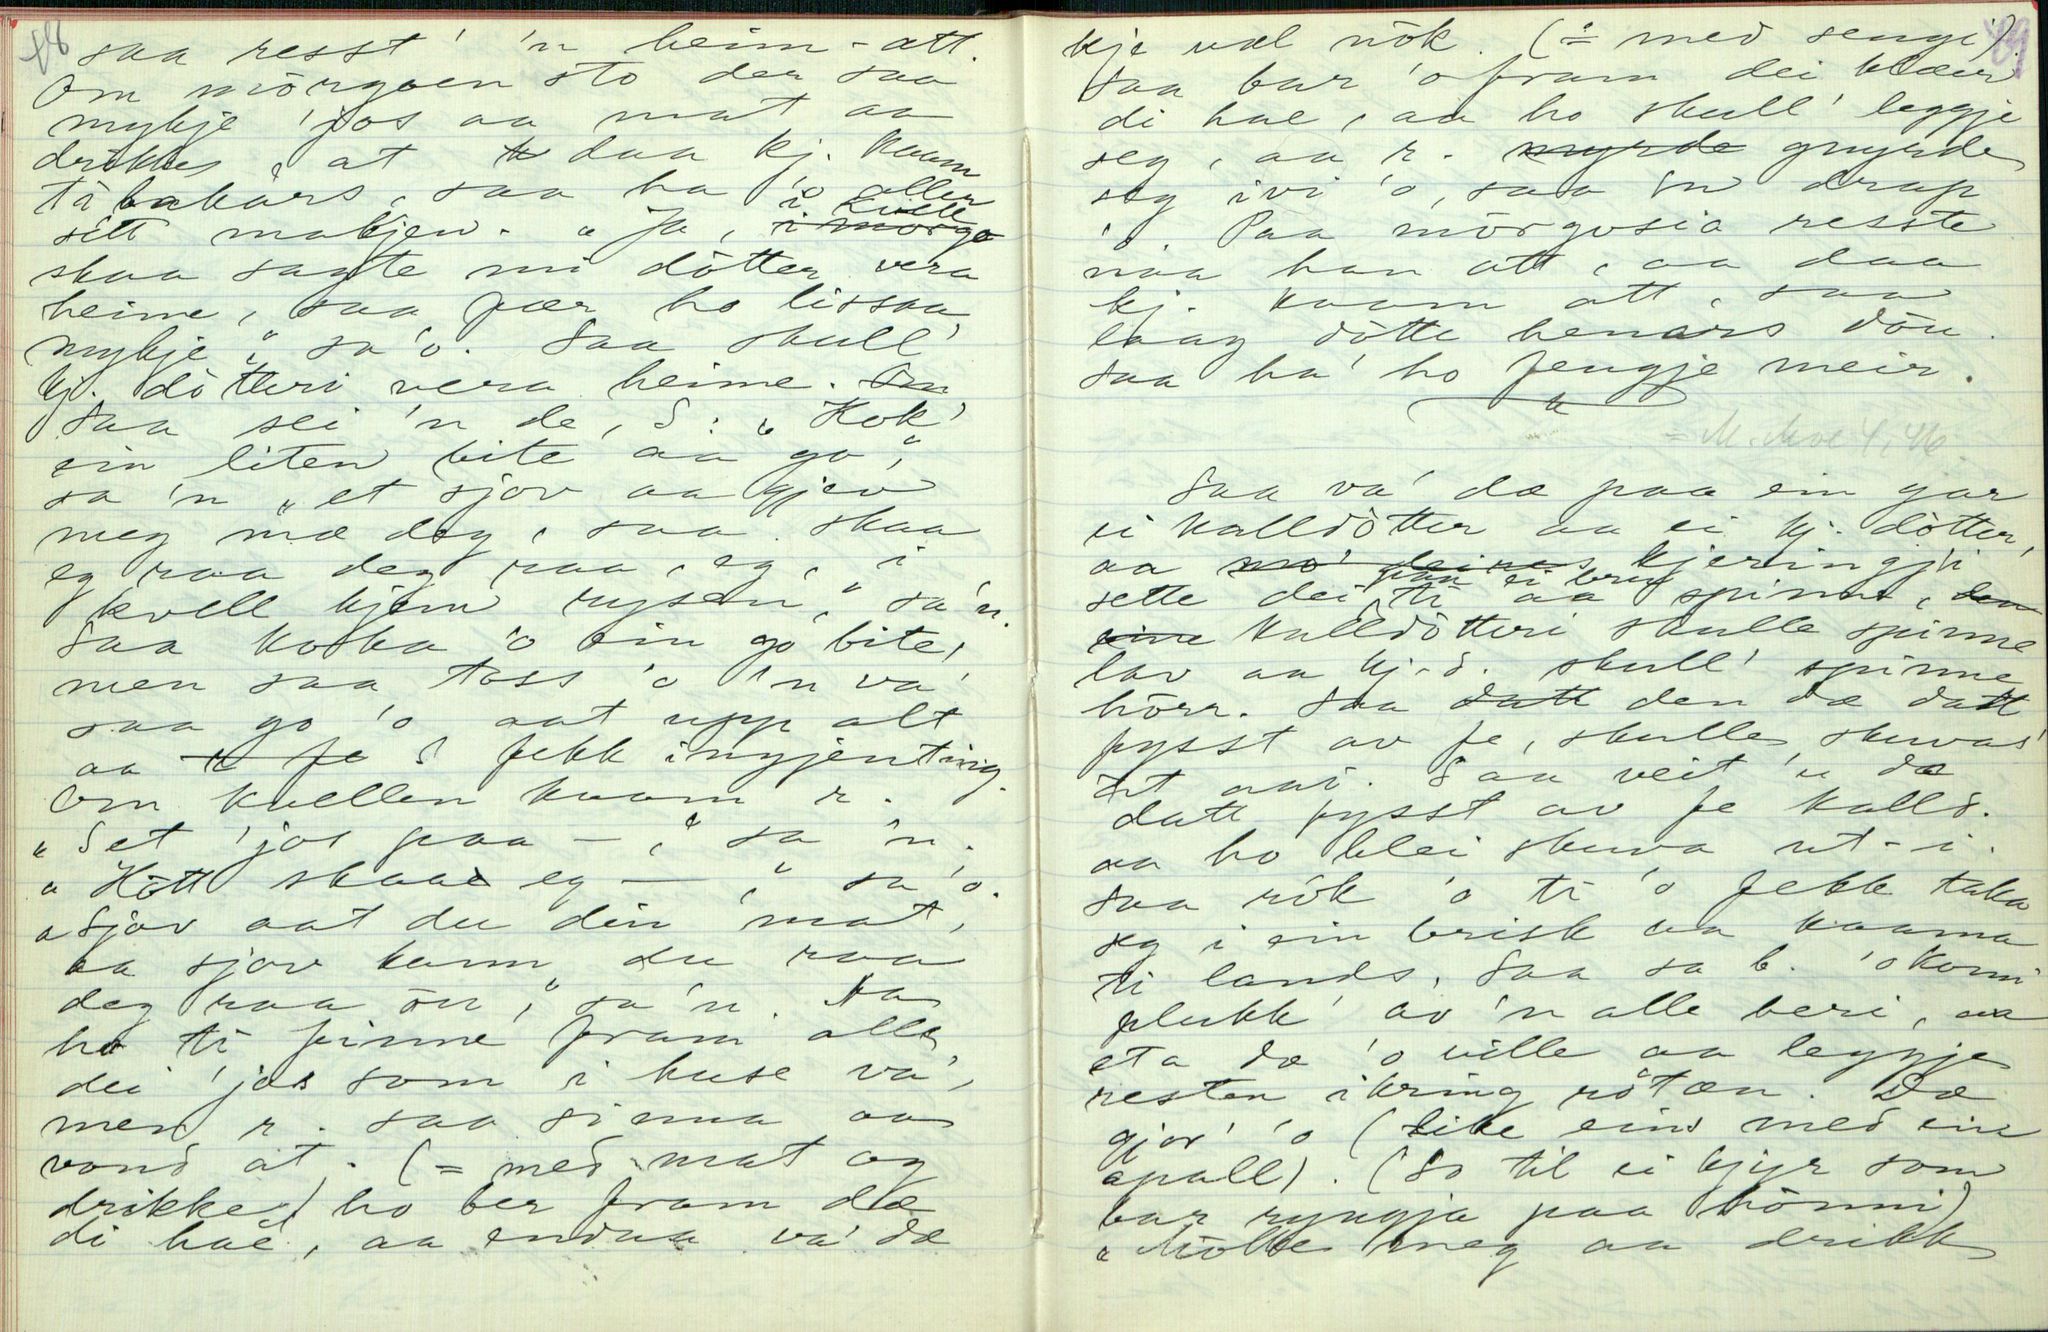 48
saa resst' 'n heim-att.
Om mörgoen sto der saa
mykje 'jos aa mat aa
drikkes, at daa kj. kaam
tibakars, saa ha 'o aller
sitt makjen. "Ja, i kvell
i morgo
skaa sagte mi dötter vera
heime, saa fær ho lissaa
mykje," sa'o. Saa skull'
kj. dötteri vera heime.
Saa sei 'n de, S: "Kok'
ein liten bite aa go,"
sa 'n "et sjøv aa gjev
meg mæ deg, saa skaa
eg raa deg raa, eg, i
kvell kjem rysen," sa'n.
Saa koka 'o ein go bite,
men saa toss 'o 'n va'
saa go 'o aat upp alt
aa S fekk ingjenting.
Om kvellen kaam r.
"Set 'jos paa —", sa 'n.
"Hött skaae eg —" sa'o.
"Sjøv aat du din mat,
aa sjøv kann du raa
deg raa ön," sa'n. Aa
ho ti finne fram alle
dei 'jos som i huse va',
men r. saa sinna aa
vond at. (= med mat og
drikke) ho ber fram dæ
di hae, aa endaa va' dæ
49
kje væl nök. (= med sengi).
Saa bar 'o fram dei klæer
di hae, aa ho skull' leggje
seg, aa r. myrde gnyrde
seg ivi 'o, saa 'n drap
'o. Paa mörgosia resste
naa han att, aa daa
kj. kaam att, saa
laag dötte henars döu.
Saa ha' ho fengje meir.
= M. Moe 4, 46.
Saa va' dæ paa ein gar
ei kalldötter aa ei kj. dötter,
aa kjeringji
sette dei paa ei bru ti aa spinne, den
eine kalldötteri skulle spinne
lav aa kj-d. skull' spinne
hörr. Saa datt den dæ datt
fysst av fe, skulle skuvas
ut aai. Saa veit 'u dæ
datt fysst av fe kalld.
aa ho blei skuva ut-i.
Saa rök 'o ti 'o fekk taka
seg i ein brisk aa kaama
ti lands. Saa sa b. 'o kom
plukk' av 'n alle beri, aa
eta dæ 'o ville aa leggje
resten ikring rötæn. Dæ
gjor' 'o (like eins med ein
apall). (So til ei kjyr som
bar ryngja paa hönni)
"Mölke meg aa drikk